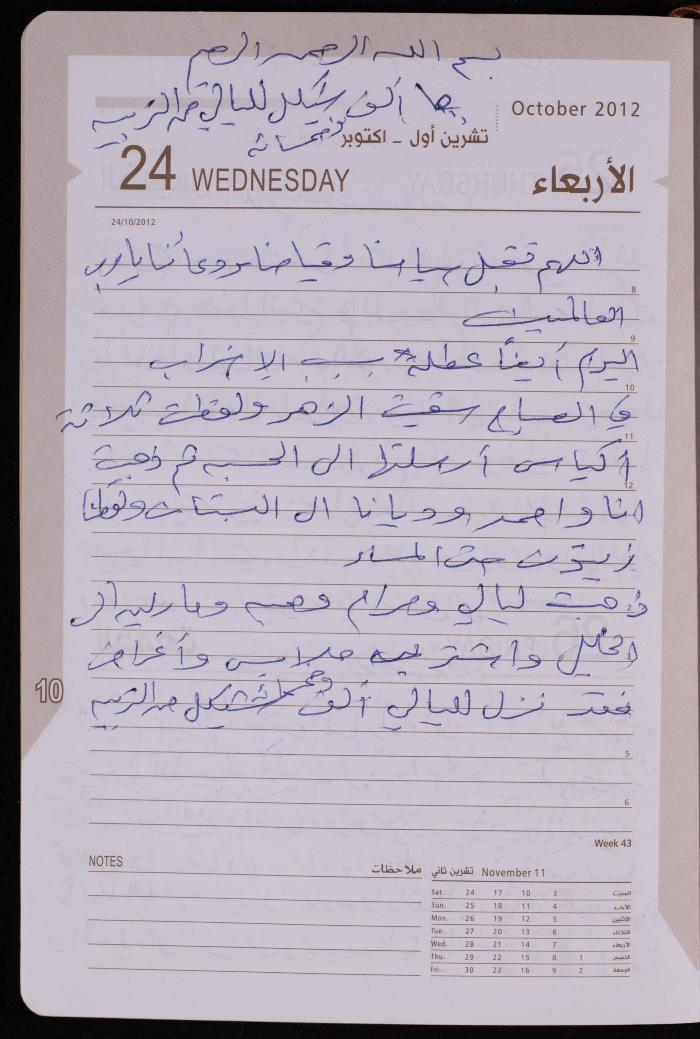 بسم الله الرحمن الرحيم
ألف شيكل لليالي من التربيه
وخمسمائه
October 2012
تشرين أول - اكتوبر
24 WEDNESDAY
الأربعاء
24/10/2012
اللهم تقبل صيامنا وقيامنا ودعائنا يارب
8
العالمين
9
اليوم أيضاً عطلة بسبب الاضراب
10
في الصباح سقيت الزهر ولقطت ثلاثة
11
أكياس أرسلتها الى الحسبه ثم ذهبت
12
انا واحمد وديانا ال البنات ولقطنا
زيتون حتى المساء
ذهبت ليالي ومرام وهبه وماريه ال
2
الخليل واشترت ملابس وأغراض
3
فقد نزل لليالي ألف وخمسمائة شيكل من التربيه
10
5
6
Week 43
NOTES
ملاحظات
November 11 تشرين ثاني
Sat. 24 17 10 3 السبت
Sun. 25 18 11 4 الأحد
Mon. 26 19 12 5 الاثنين
Tue. 27 20 13 6 الثلاثاء
Wed. 28 21 14 7 الأربعاء
Thu. 29 22 15 8 1 الخميس
Fri. 30 23 16 9 2 الجمعة